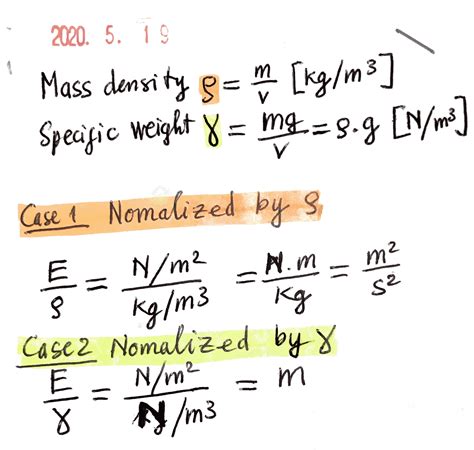 2020. 5. 19
Mass density ρ = m/v [kg/m³]
Specific weight γ = mg/v = ρ·g [N/m³]
Case 1 Nomalized by ρ
E/ρ = N/m² / kg/m³ = N.m/kg = m²/s²
Case 2 Nomalized by γ
E/γ = N/m² / N/m³ = m